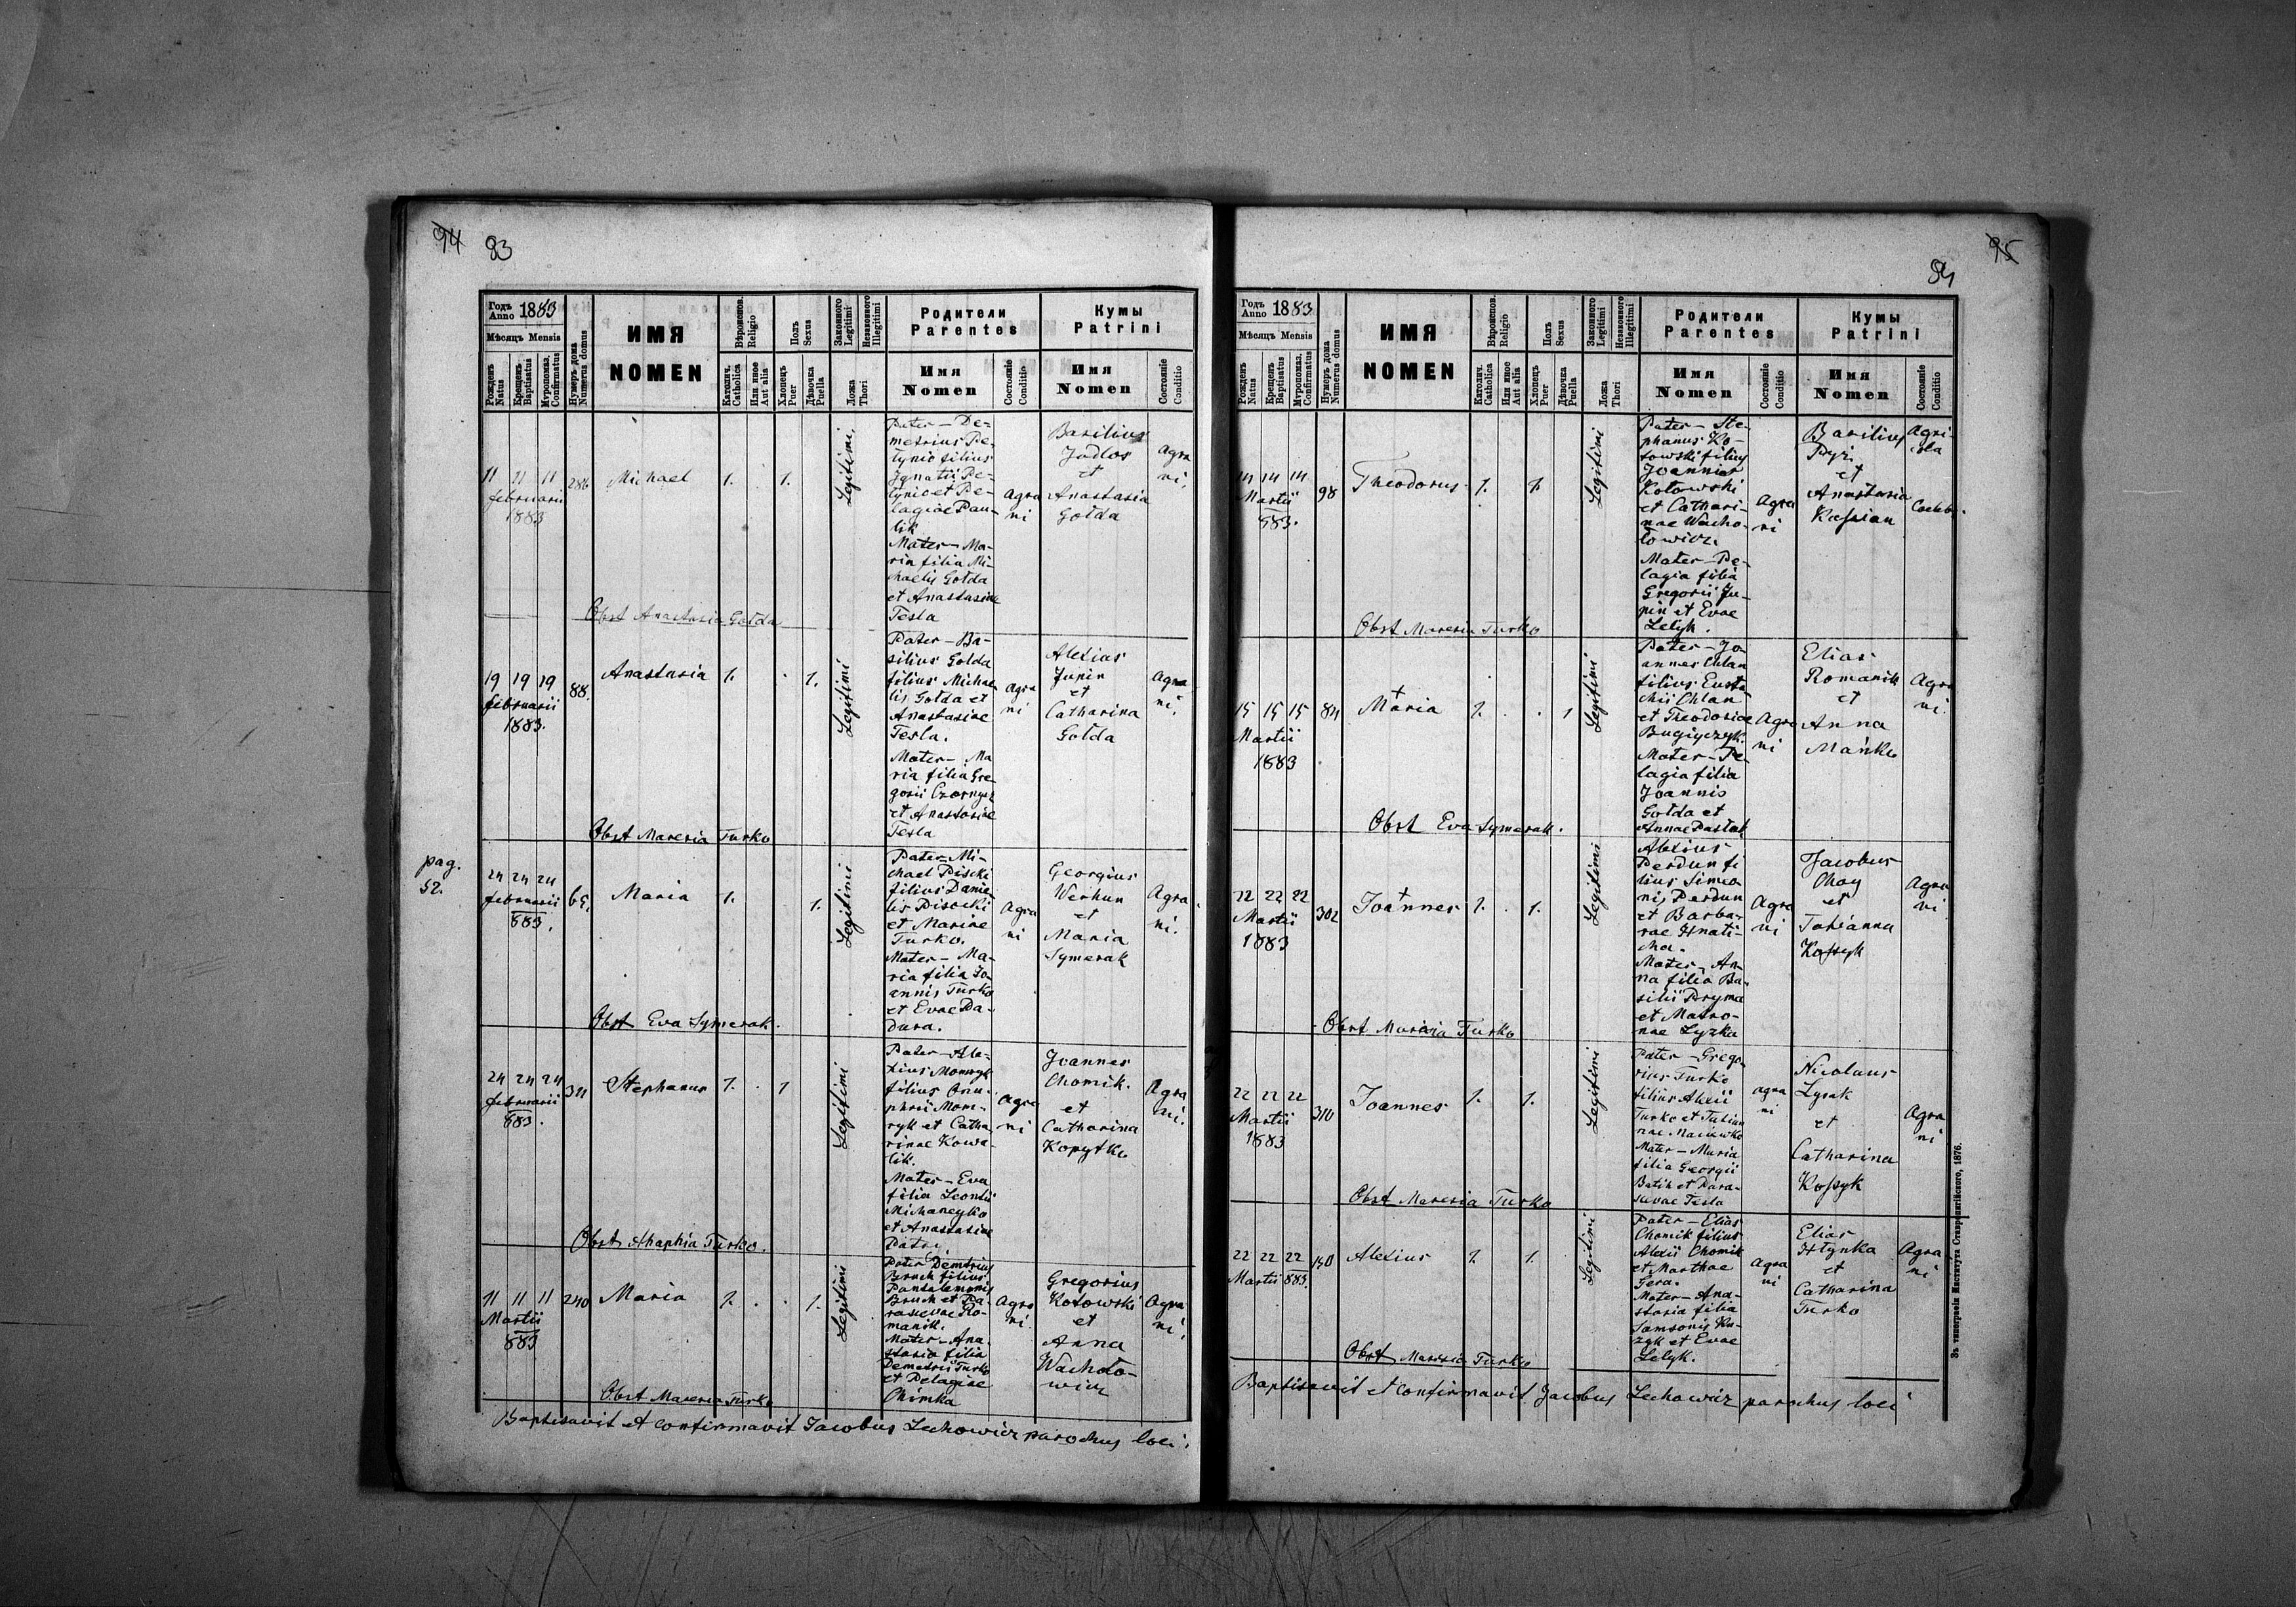 94 83
Годъ Anno 1883
Мѣсяцъ Mensis
Рожденъ Natus
Крещенъ Baptisatus
Мѵропомаз. Confirmatus
Нумеръ дома Numerus domus
ИМЯ
NOMEN
Вѣроисповѣд. Religio
Католич. Catholica
Или иное Aut alia
Полъ Sexus
Хлопецъ Puer
Дѣвочка Puella
Законного Legitimi
Незаконного Illegitimi
Ложа Thori
Родители
Parentes
Имя
Nomen
Состояніе Conditio
Кумы
Patrini
Имя
Nomen
Состояніе Conditio
11 11 11
februarii
1883
286
Michael
1.
1.
Legitimi.
Pater – De-
metrius Pe-
tynio filius
Ignatii Pe-
tynio et Pe-
lagiae Pau-
lik
Mater – Ma-
ria filia Mi-
chaelis Gołda
et Anastasiae
Tesla
Agra
ni
Basilius
Judlos
et
Anastasia
Gołda
Agra
ni.
Obst Anastasia Gołda
19 19 19
februarii
1883.
88.
Anastasia
1.
1.
Legitimi
Pater – Ba-
silius Gołda
filius Michae
lis Gołda et
Anastasiae
Tesla.
Mater – Ma
ria filia Gre-
gorii Czornyj
et Anastasiae
Tesla
Agra
ni
Alexius
Jupin
et
Catharina
Gołda
Agra
ni.
Obst Mareria Turko
pag.
52.
24 24 24
februarii
883.
65.
Maria
1.
1.
Legitimi
Pater – Mi-
chael Pisocki
filius Danie
lis Pisocki
et Mariae
Turko.
Mater – Ma-
ria filia Jo-
annis Turko
et Evae Da-
dura.
Agra
ni
Georgius
Werhun
et
Maria
Symerak
Agra
ni.
Obst Eva Symerak.
24 24 24
februarii
883.
311
Stephanus
1.
1
Legitimi
Pater – Ale-
xius Momryk
filius Onu-
phrii Mom-
ryk et Catha-
rinae Kowa-
lik.
Mater – Eva
filia Leontii
Michaneyko
et Anastasiae
Agra
ni
Joannes
Chomik.
et
Catharina
Kopytko
Agra
ni.
Obst Ahaphia Turko.
11 11 11
Martii
883
240
Maria
1.
1.
Legitimi
Pater Demetrius
Bruch filius
Pantalemonis
Bruch et Pa-
rascevae Ro-
manik.
Mater – Ana-
stasia filia
Demetrii Turko
et Pelagiae
Chimka
Agra
ni
Gregorius
Kotowski
et
Anna
Wachoło-
wicz
Agra
ni.
Obst Mareria Turko
Baptisavit et Confirmavit Jacobus Lechowicz parochus loci.
95
84
Годъ Anno 1883
Мѣсяцъ Mensis
Рожденъ Natus
Крещенъ Baptisatus
Мѵропомаз. Confirmatus
Нумеръ дома Numerus domus
ИМЯ
NOMEN
Вѣроисповѣд. Religio
Католич. Catholica
Или иное Aut alia
Полъ Sexus
Хлопецъ Puer
Дѣвочка Puella
Законного Legitimi
Незаконного Illegitimi
Ложа Thori
Родители
Parentes
Имя
Nomen
Состояніе Conditio
Кумы
Patrini
Имя
Nomen
Состояніе Conditio
14 14 14
Martii
883.
98
Theodorus
1.
1.
Legitimi
Pater – Ste-
phanus Ko-
towski filius
Joannis
Kotowski
et Cathari-
nae Wacho-
łowicz.
Mater – Pe-
lagia filia
Gregorii Ju-
pin et Evae
Lelyk.
Agra
ni
Basilius
Pyz
et
Anastasia
Kassian
Agri-
cola
Obst Mareria Turko
15 15 15
Martii
1883
84
Maria
1.
1
Legitimi
Pater – Jo-
annes Chlan
filius Eusta-
chii Chlan
et Theodosiae
Bugiyczyk.
Mater – Pe-
lagia filia
Joannis
Gołda et
Annae Pastuk
Agra
ni
Elias
Romanik
et
Anna
Mańko
Agra
ni.
Obst Eva Symerak.
22 22 22
Martii
1883
302
Joannes
1.
1.
Legitimi
Alexius
Perdun fi
lius Simeo-
nis Perdun
et Barba-
rae Hnati-
cha.
Mater – An-
na filia Ba-
silii Pryma
et Matro-
nae Lyzka
Agra
ni
Jacobus
Chay
et
Tatianna
Kossyk
Agra
ni
Obst Mareria Turko
22 22 22
Martii
1883
310
Joannes
1.
1.
Legitimi
Pater – Grego-
rius Turko
filius Alexii
Turko et Julian
nae Maciewko
Mater – Maria
filia Georgii
Batih et Para-
scevae Tesla
agra
ni
Nicolaus
Lysak
et
Catharina
Kossyk
Agra
ni
Obst Mareria Turko
22 22 22
Martii 883.
150
Alexius
1.
1.
Legitimi
Pater – Elias
Chomik filius
Alexii Chomik
et Marthae
Gera.
Mater – Ana-
stasia filia
Samsonis Ku-
zyk et Evae
Lelyk.
Agra
ni
Elias
Hlynka
et
Catharina
Turko
Agra
ni
Obst Mareria Turko
Baptisavit et Confirmavit Jacobus Lechowicz parochus loci
Зъ типографіи Института Ставропигійского, 1876.